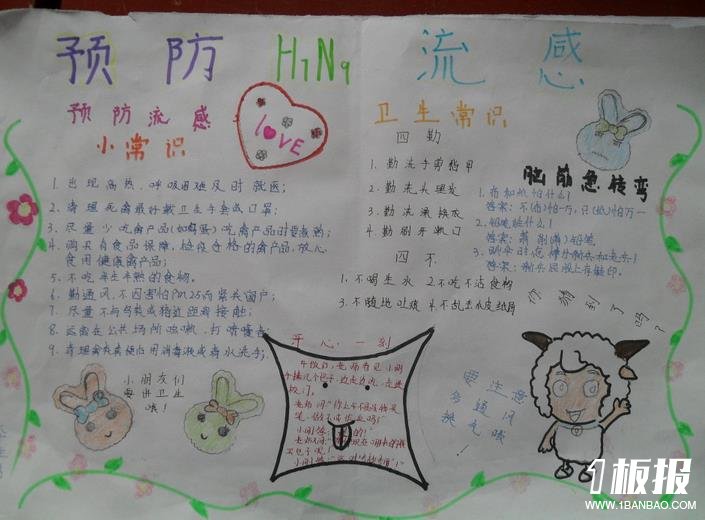 预防 H7N9 流感
预防流感
小常识
LOVE
1、出现高热、呼吸困难及时就医;
2、清理死禽最好戴卫生手套或口罩;
3、尽量少吃禽产品(如鸡蛋)吃禽产品时要煮熟;
4、购买有食品保障,检疫合格的禽产品,放心
食用健康禽产品;
5、不吃半生半熟的食物。
6、勤通风,不因害怕PM2.5而紧关窗户;
7、尽量不与鸟类或猪近距离接触;
8、远离在公共场所咳嗽、打喷嚏者;
9、清理禽类粪便用消毒液或者水洗手;
小朋友们
要讲卫生
哦!
开心一刻
午饭后,老师看见小刚
手拿几个包子,边走边吃,走进
校门。
卫生常识
四勤
1、勤洗手剪指甲
2、勤洗头理发
3、勤洗澡换衣
4、勤刷牙漱口
四不
1、不喝生水 2、不吃不洁食物
3、不随地吐痰 4、不乱丢果皮纸屑
脑筋急转弯
1、布和纸怕什么!
答案:不(布)怕一万,只(纸)怕万一
2、铅笔姓什么!
答案:萧,削(萧)铅笔
你猜到了吗?
要注意
多通风
换气哦!
1板报
WWW.1BANBAO.COM